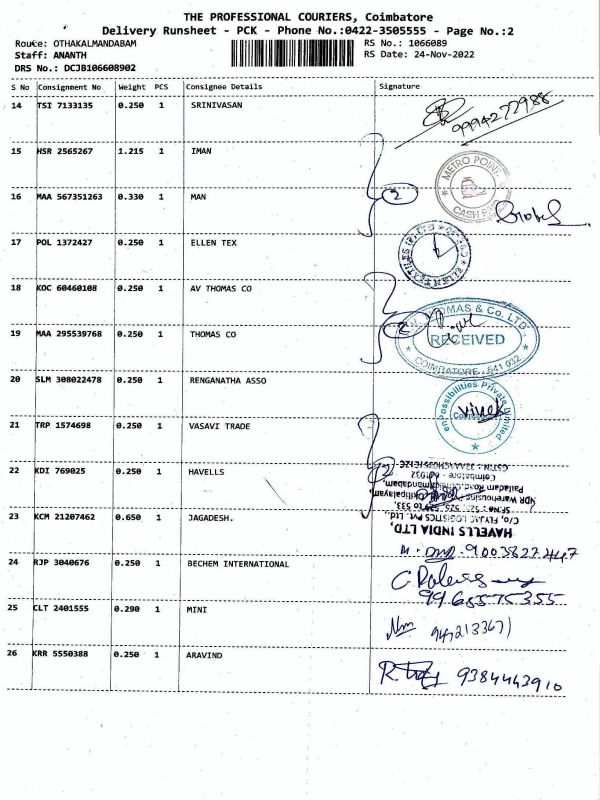 THE PROFESSIONAL COURIERS, Coimbatore
Delivery Runsheet - PCK - Phone No.:0422-3505555 - Page No.:2
Route: OTHAKALMANDABAM RS No.: 1066089
Staff: ANANTH RS Date: 24-Nov-2022
DRS No.: DCJB106608902
S No Consignment No Weight PCS Consignee Details Signature
14 TSI 7133135 0.250 1 SRINIVASAN
9994277988
15 HSR 2565267 1.215 1 IMAN
METRO POINT
CASH
16 MAA 567351263 0.330 1 MAN
2
17 POL 1372427 0.250 1 ELLEN TEX
18 KOC 60460108 0.250 1 AV THOMAS CO
THOMAS & Co. LTD.
19 MAA 295539768 0.250 1 THOMAS CO
2
RECEIVED
COIMBATORE - 641 032
20 SLM 308022478 0.250 1 RENGANATHA ASSO
enPossibilities Private Limited
Vivek
21 TRP 1574698 0.250 1 VASAVI TRADE
22 KDI 769025 0.250 1 HAVELLS
2
HAVELLS INDIA LTD,
C/o, FLYJAC LOGISTICS Pvt. Ltd.,
NDR Warehousing
Coimbatore - 641032
23 KCM 21207462 0.650 1 JAGADESH.
9003822447
24 RJP 3040676 0.250 1 BECHEM INTERNATIONAL
9965575355
25 CLT 2401555 0.290 1 MINI
26 KRR 5550388 0.250 1 ARAVIND
9384443910